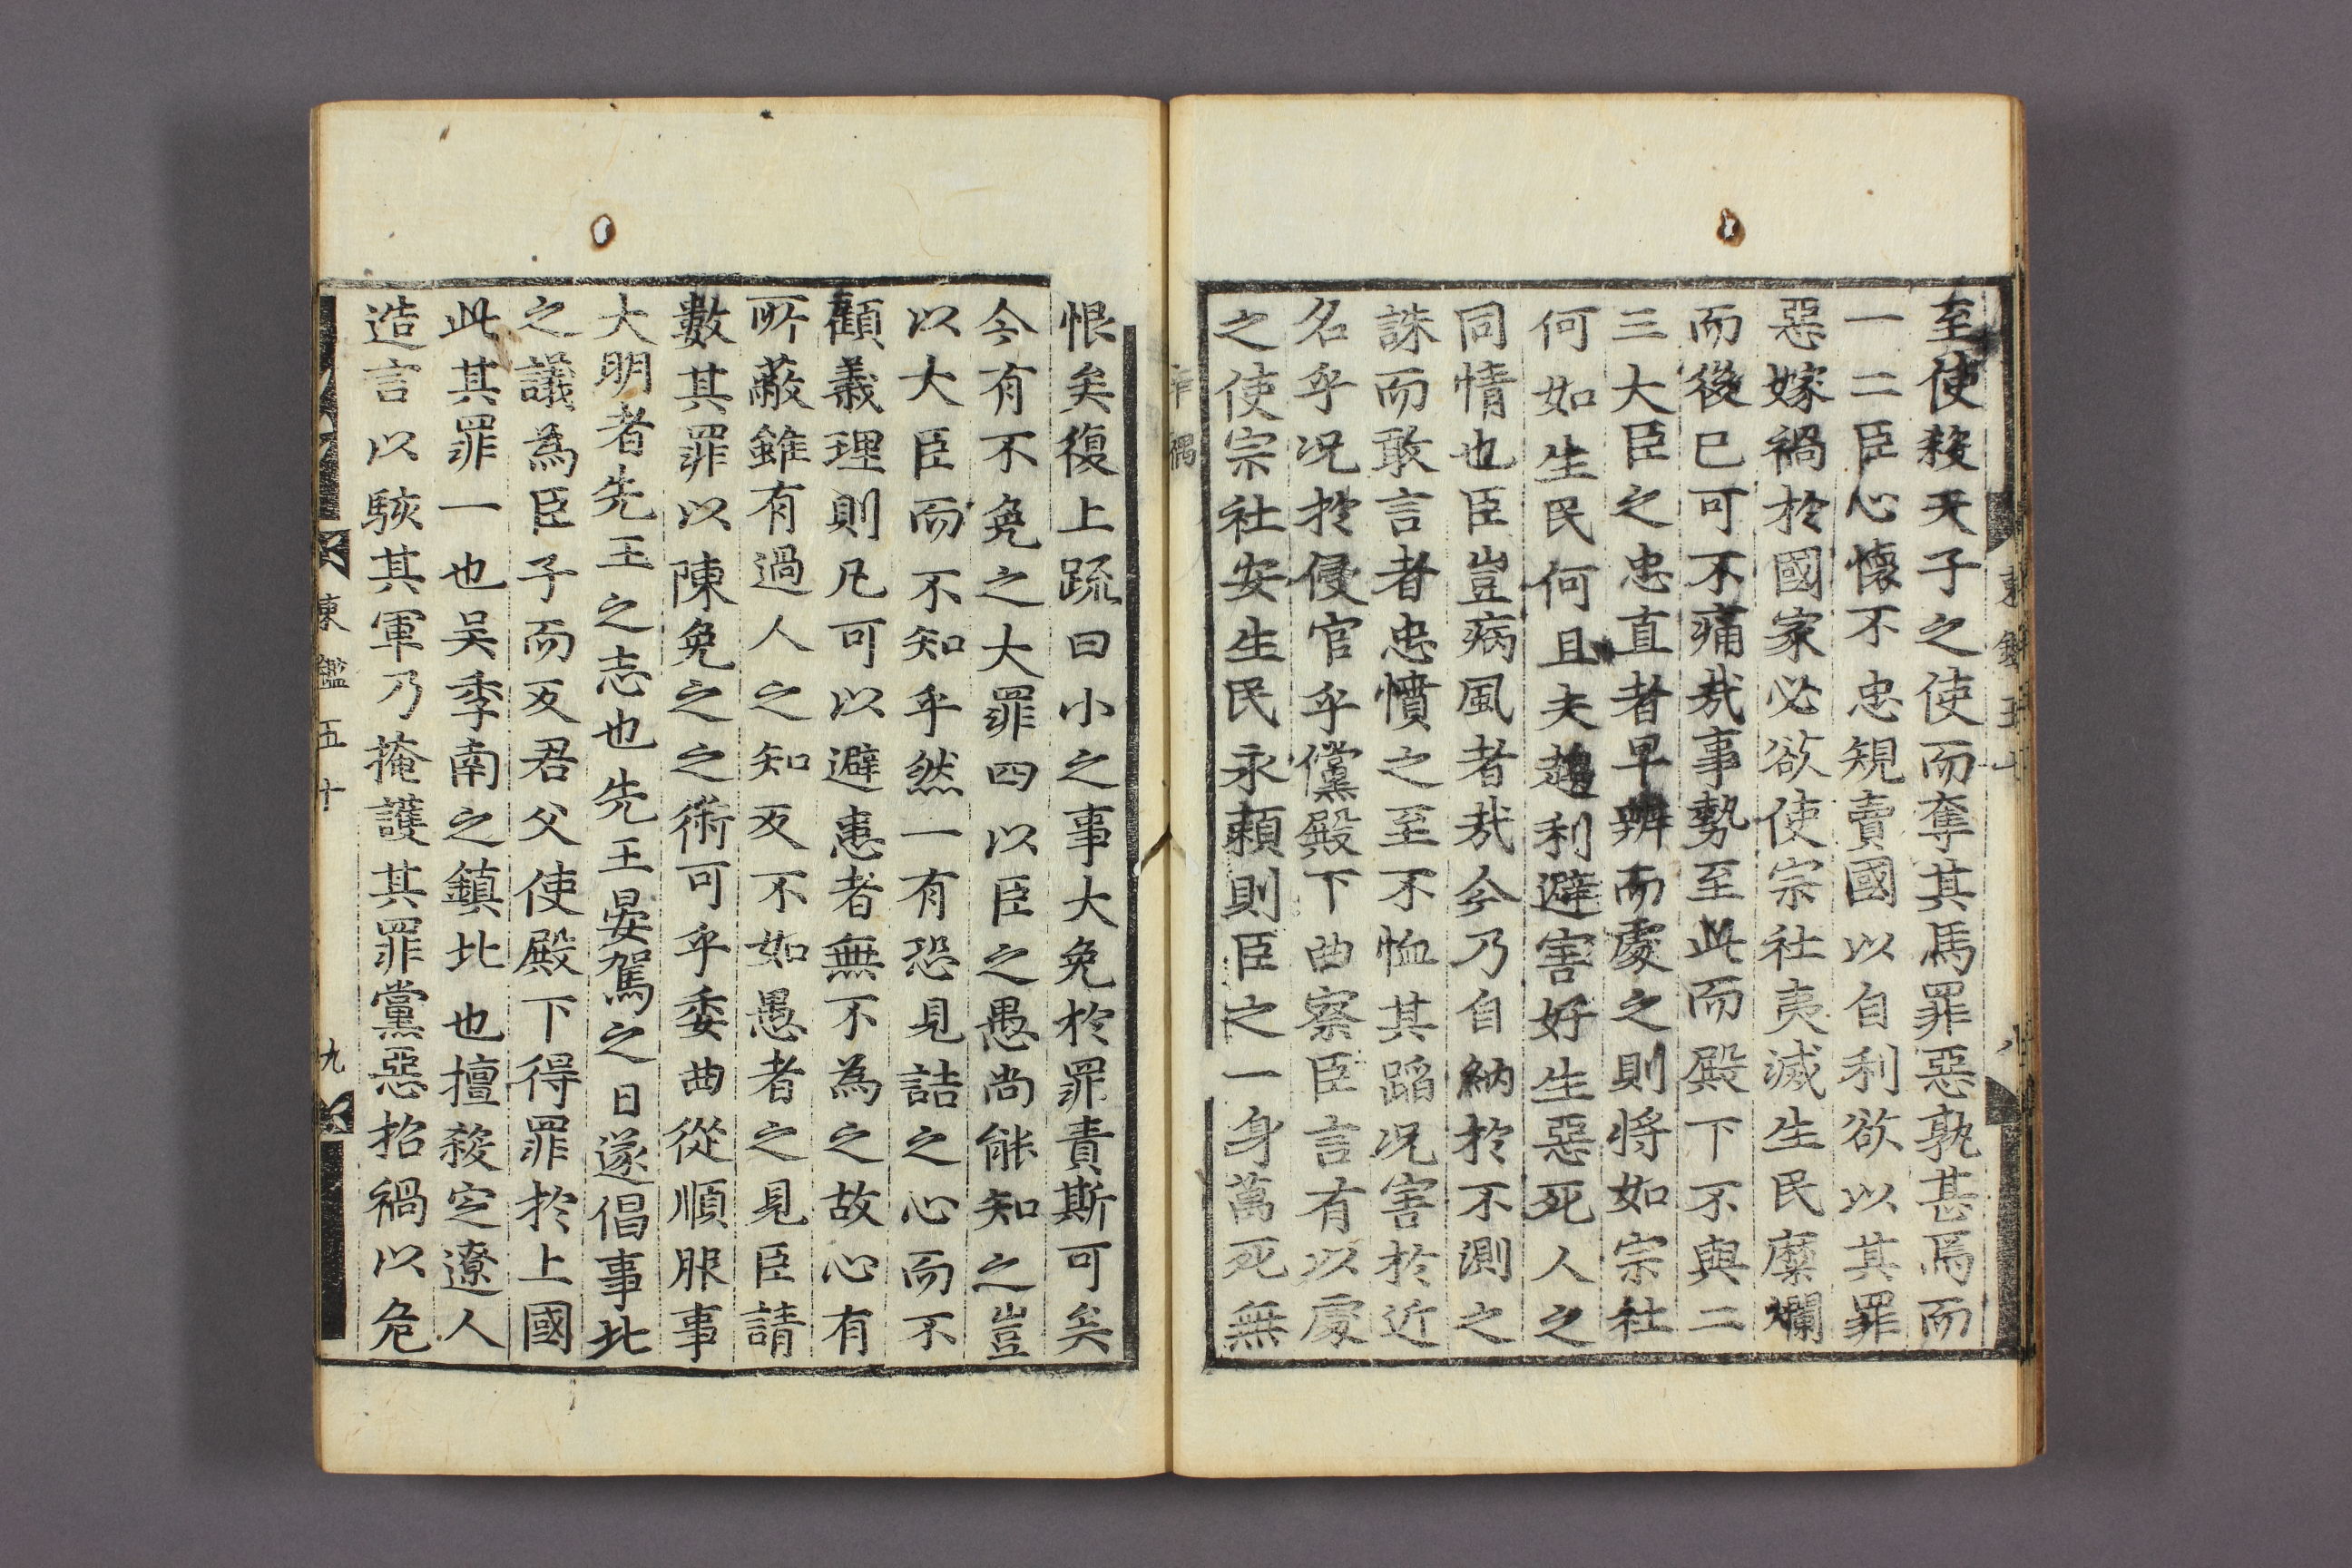 至使殺天子之使而奪其馬罪惡孰甚焉而
一二臣心懷不忠規賣國以自利欲以其罪
惡嫁禍於國家必欲使宗社夷滅生民糜爛
而後已可不痛㢤事勢至此而殿下不與二
三大臣之忠直者早辨而處之則將如宗社
何如生民何且夫趨利避害好生惡死人之
同情也臣豈病風者㢤今乃自納於不測之
誅而敢言者忠憤之至不恤其蹈况害於近
名乎况於侵官乎儻殿下曲察臣言有以處
之使宗社安生民永頼則臣之一身萬死無
辛禑
恨矣復上疏曰小之事大免於罪責斯可矣
今有不免之大罪四以臣之愚尚能知之豈
以大臣而不知乎然一有恐見詰之心而不
顧義理則凡可以避患者無不為之故心有
所蔽雖有過人之知反不如愚者之見臣請
數其罪以陳免之之術可乎委曲從順服事
大明者先王之志也先王晏駕之日遂倡事北
之議為臣子而反君父使殿下得罪於上國
此其罪一也吴季南之鎮北也擅殺定遼人
造言以駭其軍乃掩護其罪黨惡招禍以危
東鑑五十 九